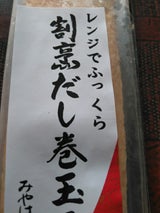 レンジでふっくら
割烹だし巻玉
みやけ